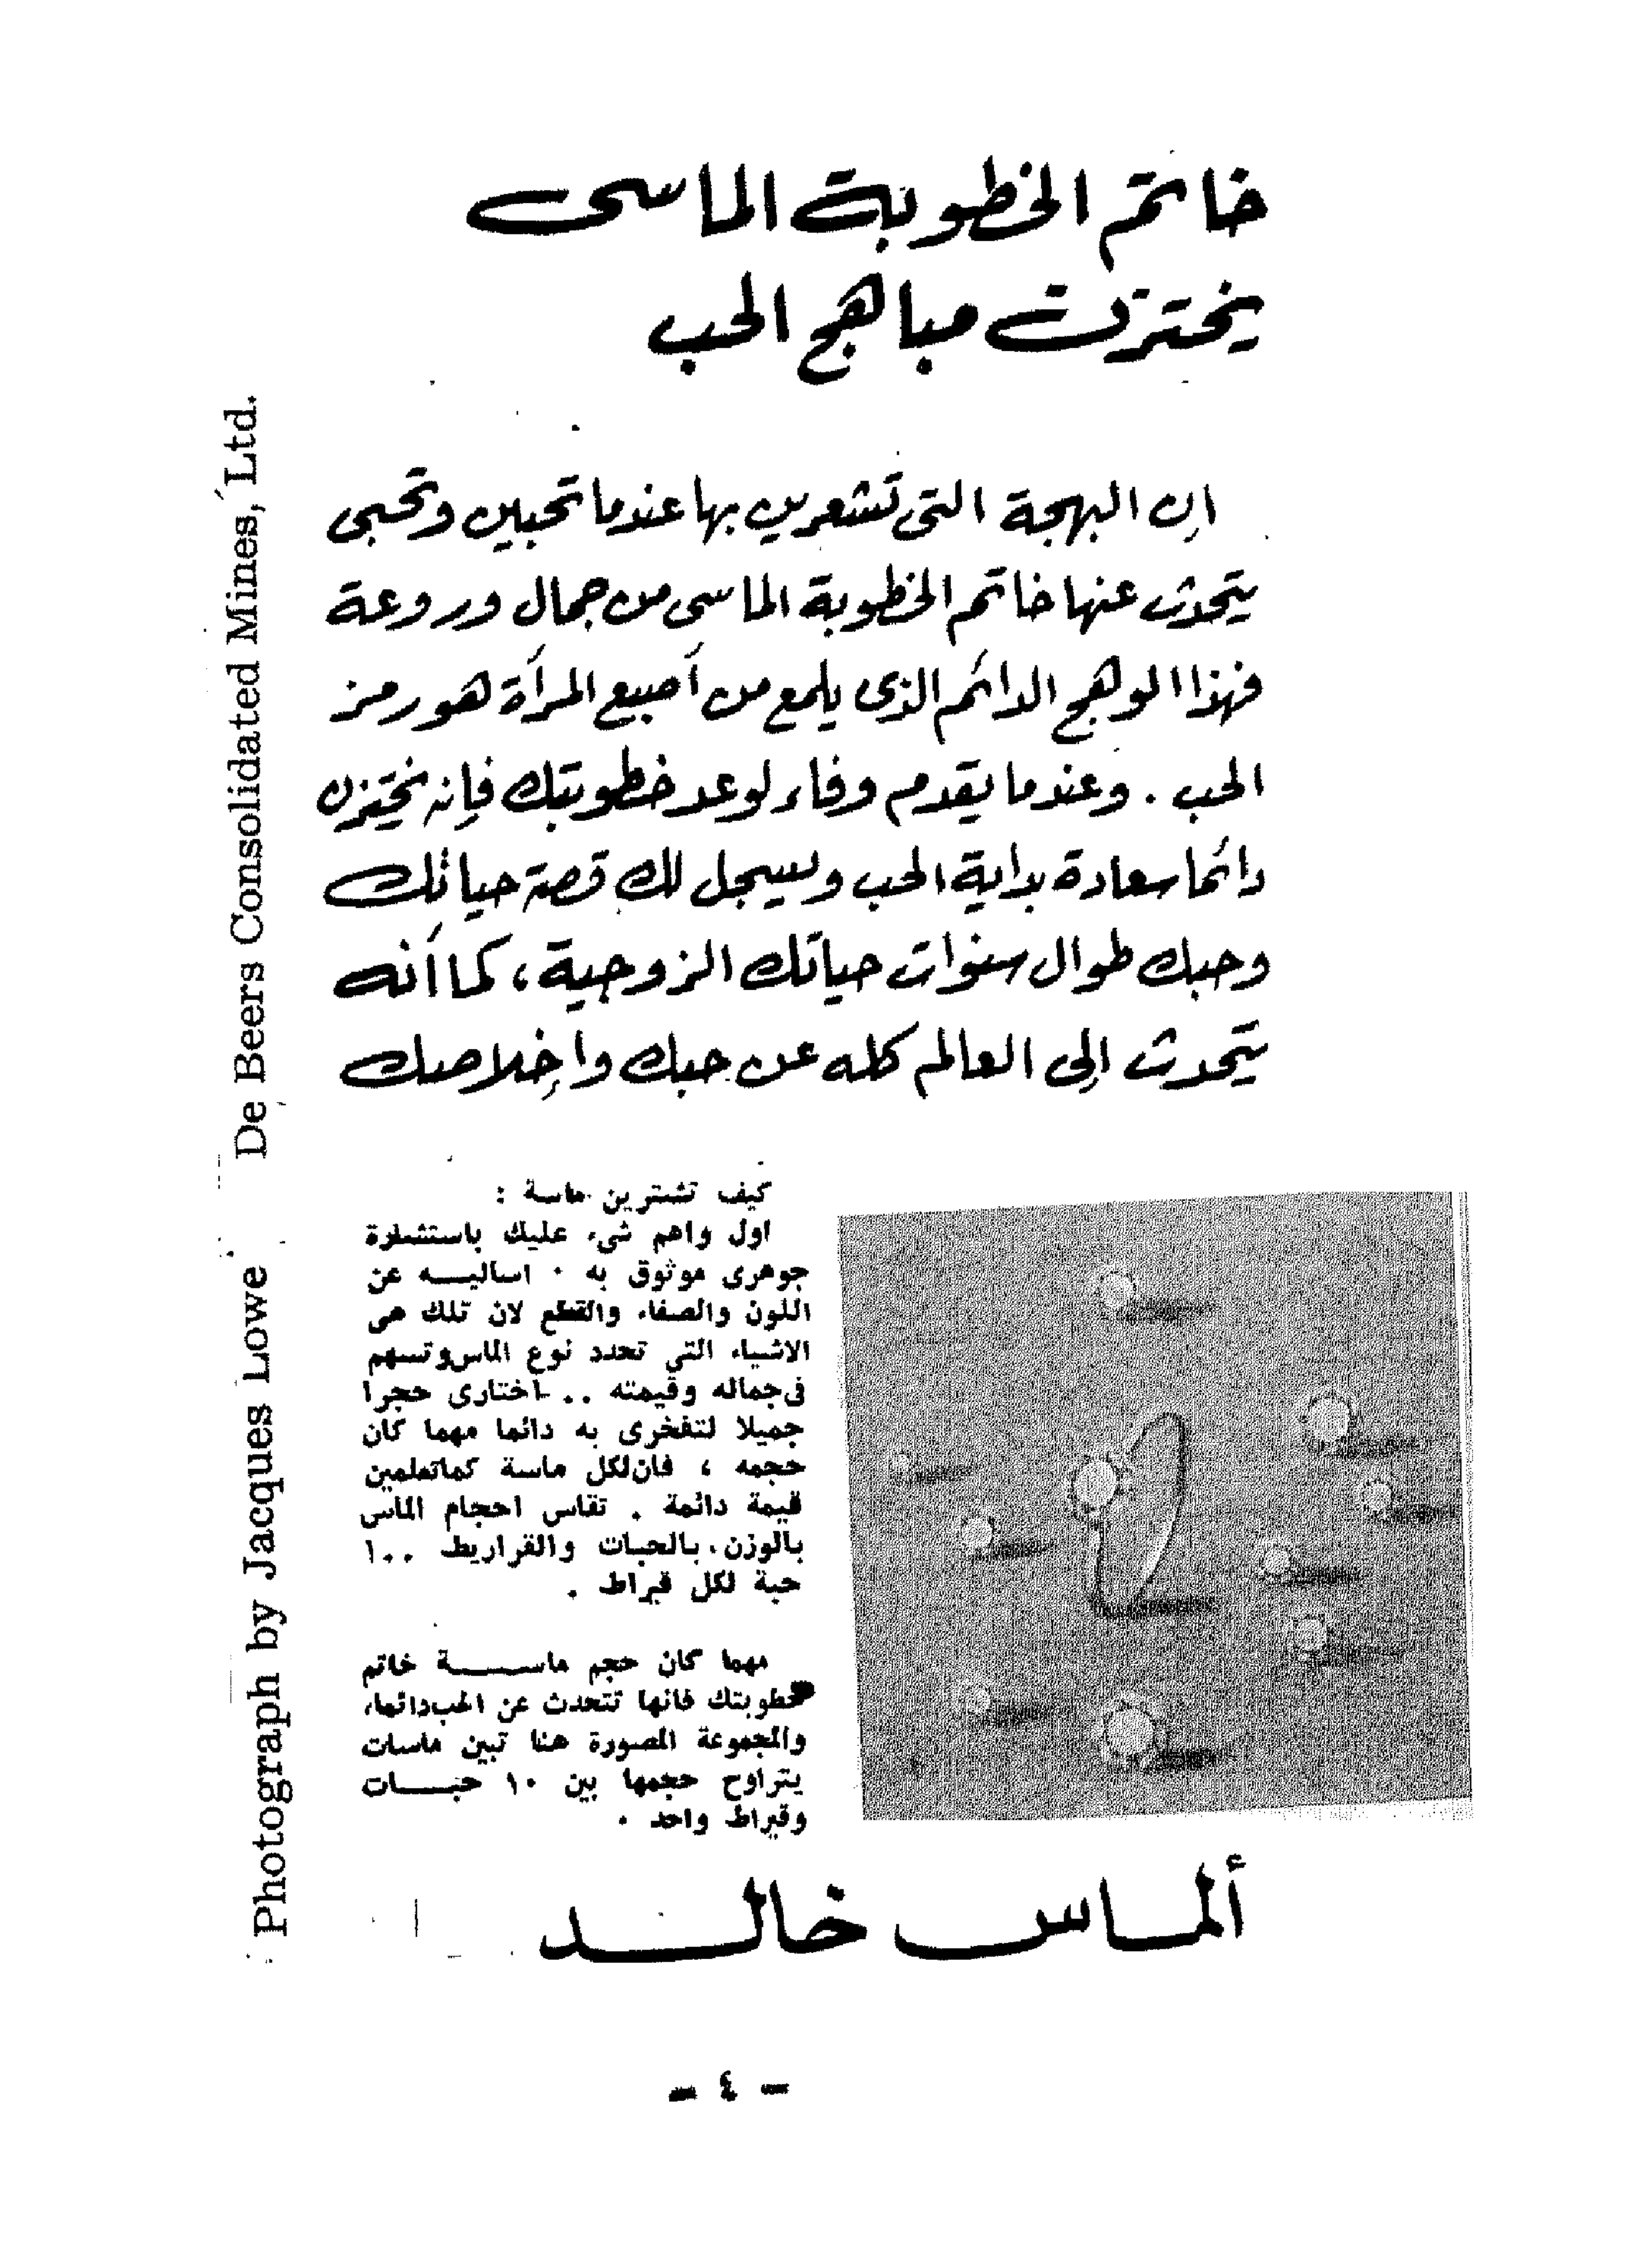 خاتم الخطوبة الماسى
يختزن مباهج الحب
إن البهجة التى تشعرين بها عندما تحبين وتحبى
يتحدث عنها خاتم الخطوبة الماسى من جمال وروعة
فهذا الوهج الدائم الذى يلمع من أصبع المرأة هو رمز
الحب . وعندما يقدم وفاء لوعد خطوبتك فإنه يختزن
دائما سعادة بداية الحب ويسجل لك قصة حياتك
وحبك طوال سنوات حياتك الزوجية ، كما أنه
يتحدث إلى العالم كله عن حبك وإخلاصك
كيف تشترين ماسة :
اول واهم شىء عليك باستشارة
جوهرى موثوق به . اساليه عن
اللون والصفاء والقطع لان تلك هى
الاشياء التي تحدد نوع الماس وتسهم
فى جماله وقيمته .. اختارى حجرا
جميلا لتفخرى به دائما مهما كان
حجمه ، فان لكل ماسة كما تعلمين
قيمة دائمة . تقاس احجام الماس
بالوزن . بالحبات والقراريط ١٠٠
حبة لكل قيراط .
مهما كان حجم ماسة خاتم
خطوبتك فانها تتحدث عن الحب دائما،
والمجموعة المصورة هنا تبين ماسات
يتراوح حجمها بين ١٠ حبات
وقيراط واحد .
ألماس خالد
Photograph by Jacques Lowe De Beers Consolidated Mines, Ltd.
- ٤ -